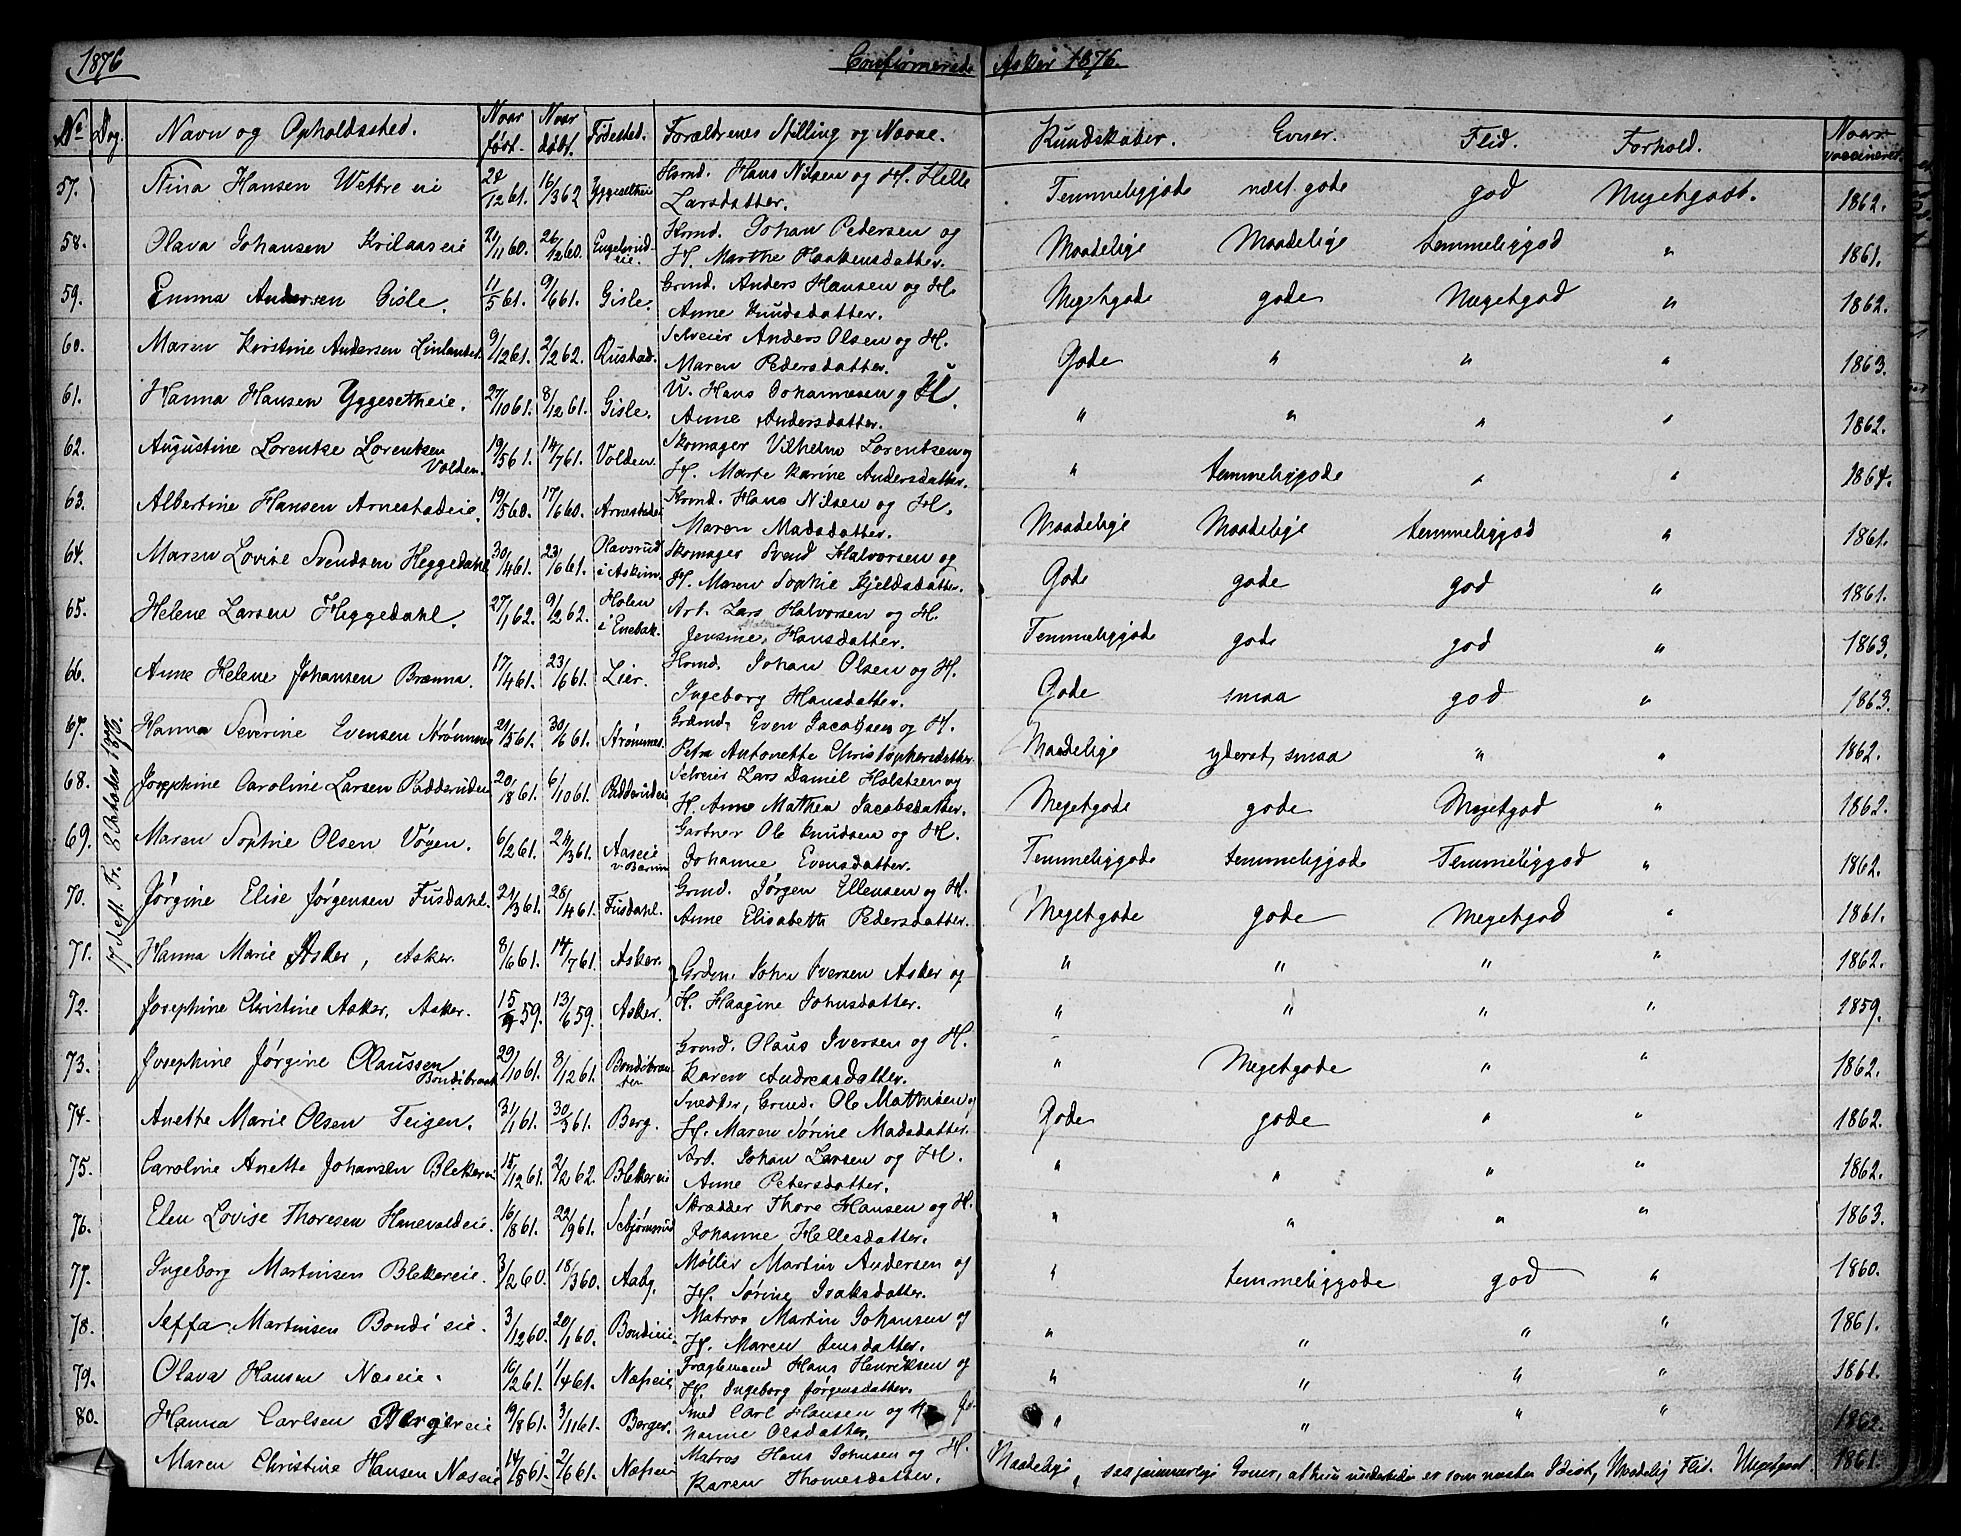 1876 Confirmerede Asker 1876.
No Dag. Navn og Opholdssted. Naar født. Naar døbt. Fødested. Forældrenes Stilling og Navne. Kundskaber. Evner. Flid. Forhold. Naar vaccineret.
17de Sept. Tr. 8 October 1876.
57. Stina Hansen Wettre eie 28/12 61. 16/3 62 Yggesetheie Husmd. Hans Nilsen og H. Helle Temmeliggode næst. gode god Megetgodt. 1862.
Larsdatter.
58. Olava Johansen Krilaaseie 21/11 60. 26/12 60. Engelsrud eie. Husmd. Johan Pedersen og Maadelige Maadelige temmeliggod " 1861.
H. Marthe Haakensdatter.
59. Emma Andersen Gisle. 11/5 61. 9/6 61. Gisle. Grmd. Anders Hansen og H. Megetgode gode Megetgod " 1862.
Anne Knudsdatter.
60. Maren Kirstine Andersen Linlandet. 9/12 61. 2/2 62. Rustad. Selveier Anders Olsen og H. Gode " " " 1863.
Maren Pedersdatter.
61. Hanna Hansen Yggesetheie. 27/10 61. 8/12 61. Gisle. U. Hans Johannesen og H. " " " " 1862.
Anne Andersdatter.
62. Augustine Lorentse Lorentsen 19/5 61. 14/7 61. Volden. Skomager Vilhelm Lorentsen og " temmeliggode " " 1864.
Volden. H. Marte Karine Andersdatter.
63. Albertine Hansen Arnestadeie. 19/5 60. 17/6 60. Arnestadeie Husmd. Hans Nilsen og H. Maadelige Maadelige temmeliggod " 1861.
Maren Madsdatter.
64. Maren Lovise Svendsen Heggedahl 30/4 61. 23/6 61. Olavsrud i Askim. Skomager Svend Halvorsen og Gode gode god " 1861.
H. Maren Sophie Kjeldsdatter.
65. Helene Larsen Heggedahl. 27/1 62. 9/2 62. Holen i Enebak. Arb. Lars Halvorsen og H. Temmeliggode gode god " 1863.
Jensine Hansdatter.
66. Anne Helene Johansen Brænna. 17/4 61. 23/6 61. Lier. Husmd. Johan Olsen og H. Gode smaa god " 1863.
Ingeborg Hansdatter.
67. Hanna Severine Evensen Strømmen 21/5 61. 30/6 61. Strømmen. Grdmd. Even Jacobsen og H. Maadelige yderst smaa " " 1862.
Petra Antonette Christophersdatter.
68. Josephine Caroline Larsen Ridderudeie 20/8 61. 6/10 61. Ridderudeie Selveier Lars Daniel Holsteen og Megetgode gode Megetgod " 1862.
H. Anne Mathea Jacobsdatter.
69. Maren Sophie Olsen Vøyen. 6/2 61. 24/3 61. Aaseie v Bærum Gartner Ole Knudsen og H. Temmeliggode temmeliggode Temmeliggod " 1862.
Johanne Evensdatter.
70. Jørgine Elise Jørgensen Fusdahl. 21/3 61. 28/4 61. Fusdahl. Grmd. Jørgen Ellensen og H. Megetgode gode Megetgod " 1861.
Anne Elisabeth Pedersdatter.
71. Hanna Marie Asker, Asker. 8/6 61. 14/7 61. Asker. Grdm. John Iversen Asker og " " " " 1862.
72. Josephine Christine Asker, Asker. 15/4 59. 13/6 59. Asker. H. Haagine Johnsdatter. " " " " 1859.
73. Josephine Jørgine Olaussen 29/10 61. 8/12 61. Bondibraaten Grmd. Olaus Iversen og H. " Megetgode " " 1862.
Bondibraat. Karen Andreasdatter.
74. Anette Marie Olsen Teigen. 31/1 61. 30/3 61. Berg. Snedker, Grmd. Ole Mathisen og Gode gode " " 1862.
H. Maren Sørine Madsdatter.
75. Caroline Anette Johansen Blekereie 15/12 61. 2/2 62. Blekereie Arb. Johan Larsen og H. " " " " 1862.
Anne Petersdatter.
76. Elen Lovise Thoresen Hanevoldeie. 16/8 61. 22/9 61. Sebjørnsrud Skrædder Thore Hansen og H. " " " " 1863.
Johanne Hellesdatter.
77. Ingeborg Martinsen Blekereie. 3/2 60. 18/3 60. Aaby. Møller Martin Andersen og " temmeliggode god " 1860.
H. Sørine Isaksdatter.
78. Seffa Martinsen Bondi eie. 3/12 60. 20/1 60. Bondieie. Matros Martin Johansen og " " " " 1861.
H. Maren Jensdatter.
79. Olava Hansen Næseie. 16/2 61. 1/4 61. Næseie. Fragtemand Hans Henriksen og " " " " 1861.
H. Ingeborg Jørgensdatter.
80. Hanna Carlsen Bergereie 19/8 61. 3/11 61. Berger. Smed Carl Hansen og H. Jo- " " " " 1862.
hanne Olsdatter.
Maren Christine Hansen Næseie 14/5 61. 2/6 61. Næseie Matros Hans Johnsen og H. Maadelige, saa jammerlige Evner, at hun undertiden er som næsten Idiot, Maadelig Flid. Megetgodt. 1861.
Karen Thomesdatter.